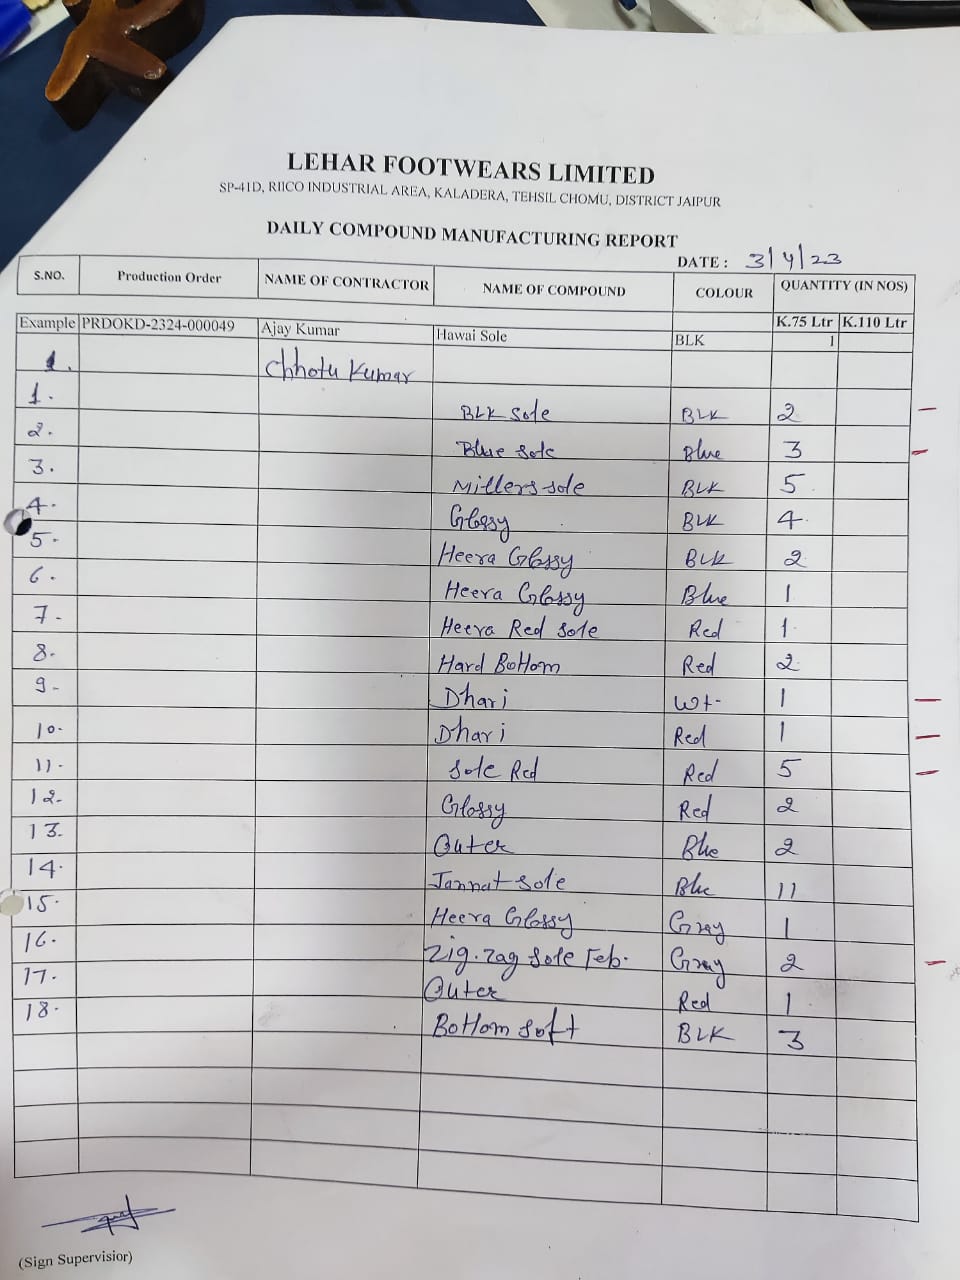 LEHAR FOOTWEARS LIMITED
SP-41D, RIICO INDUSTRIAL AREA, KALADERA, TEHSIL CHOMU, DISTRICT JAIPUR
DAILY COMPOUND MANUFACTURING REPORT
DATE : 3/4/23
S.NO. Production Order NAME OF CONTRACTOR NAME OF COMPOUND COLOUR QUANTITY (IN NOS)
K.75 Ltr K.110 Ltr
Example PRDOKD-2324-000049 Ajay Kumar Hawai Sole BLK 1
1. Chhotu Kumar
1. BLK Sole BLK 2
2. Blue Sole Blue 3
3. Millers sole BLK 5
4. Glossy BLK 4
5. Heera Glossy BLK 2
6. Heera Glossy Blue 1
7. Heera Red Sole Red 1
8. Hard Bottom Red 2
9. Dhari Wt. 1
10. Dhari Red 1
11. Sole Red Red 5
12. Glossy Red 2
13. Outer Blue 2
14. Jannat Sole Blue 11
15. Heera Glossy Gray 1
16. Zig.Zag Sole Feb. Gray 2
17. Outer Red 1
18. Bottom Soft BLK 3
(Sign Supervisior)